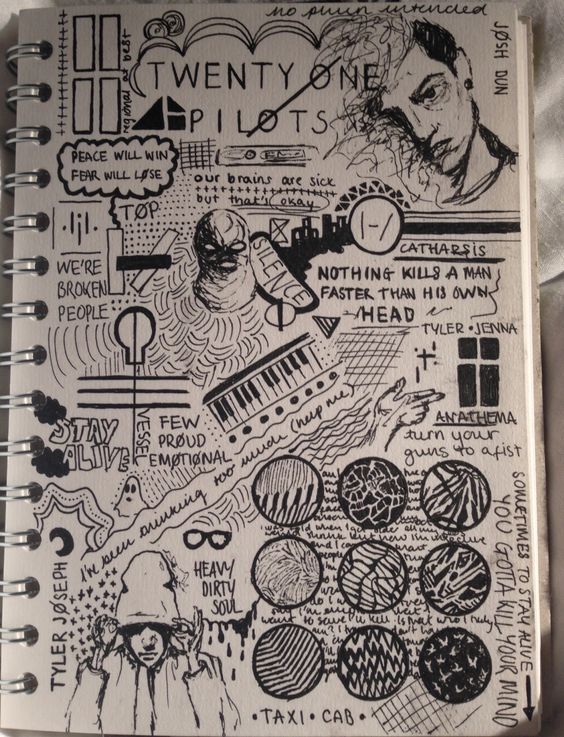 no phun intended
JØSH DUN
regional at best
TWENTY ØNE
PILØTS
PEACE WILL WIN
FEAR WILL LØSE
ØPEN
our brains are sick
but that's okay
TØP
|-/
SILENCE
CATHARSIS
WE'RE
BROKEN
PEOPLE
NOTHING KILLS A MAN
FASTER THAN HIS OWN
HEAD
TYLER · JENNA
ANATHEMA
turn your
guns to a fist
STAY
ALIVE
VESSEL
FEW
PRØUD
EMØTIØNAL
I've been thinking too much (help me)
SOMETIMES TO STAY ALIVE
YOU GOTTA KILL YOUR MIND
TYLER JØSEPH
HEAVY
DIRTY
SOUL
·TAXI·CAB·